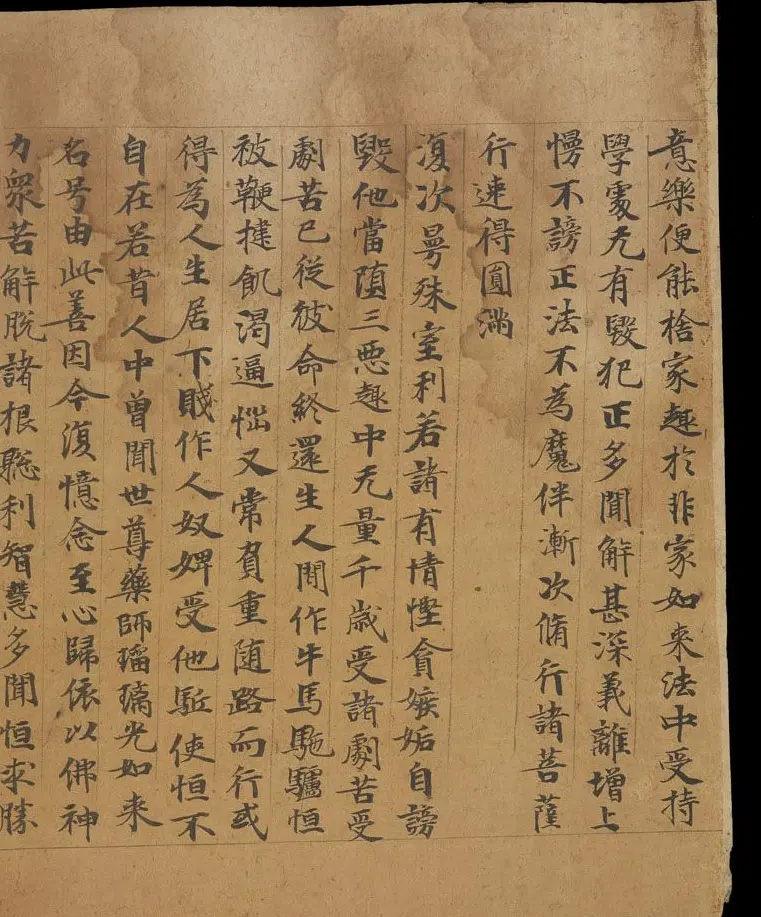 意樂便能捨家趣於非家如来法中受持
學處无有毀犯正多聞解甚深義離增上
慢不謗正法不為魔伴漸次脩行諸菩薩
行速得圓滿
復次曼殊室利若諸有情慳貪嫉妬自謗
毀他當墮三惡趣中无量千歲受諸劇苦受
劇苦已從彼命終還生人間作牛馬駞驢恒
被鞭撻飢渴逼惱又常負重随路而行或
得為人生居下賤作人奴婢受他駈使恒不
自在若昔人中曾聞世尊藥師瑠璃光如来
名号由此善因今復憶念至心歸依以佛神
力衆苦解脫諸根聡利智慧多聞恒求勝